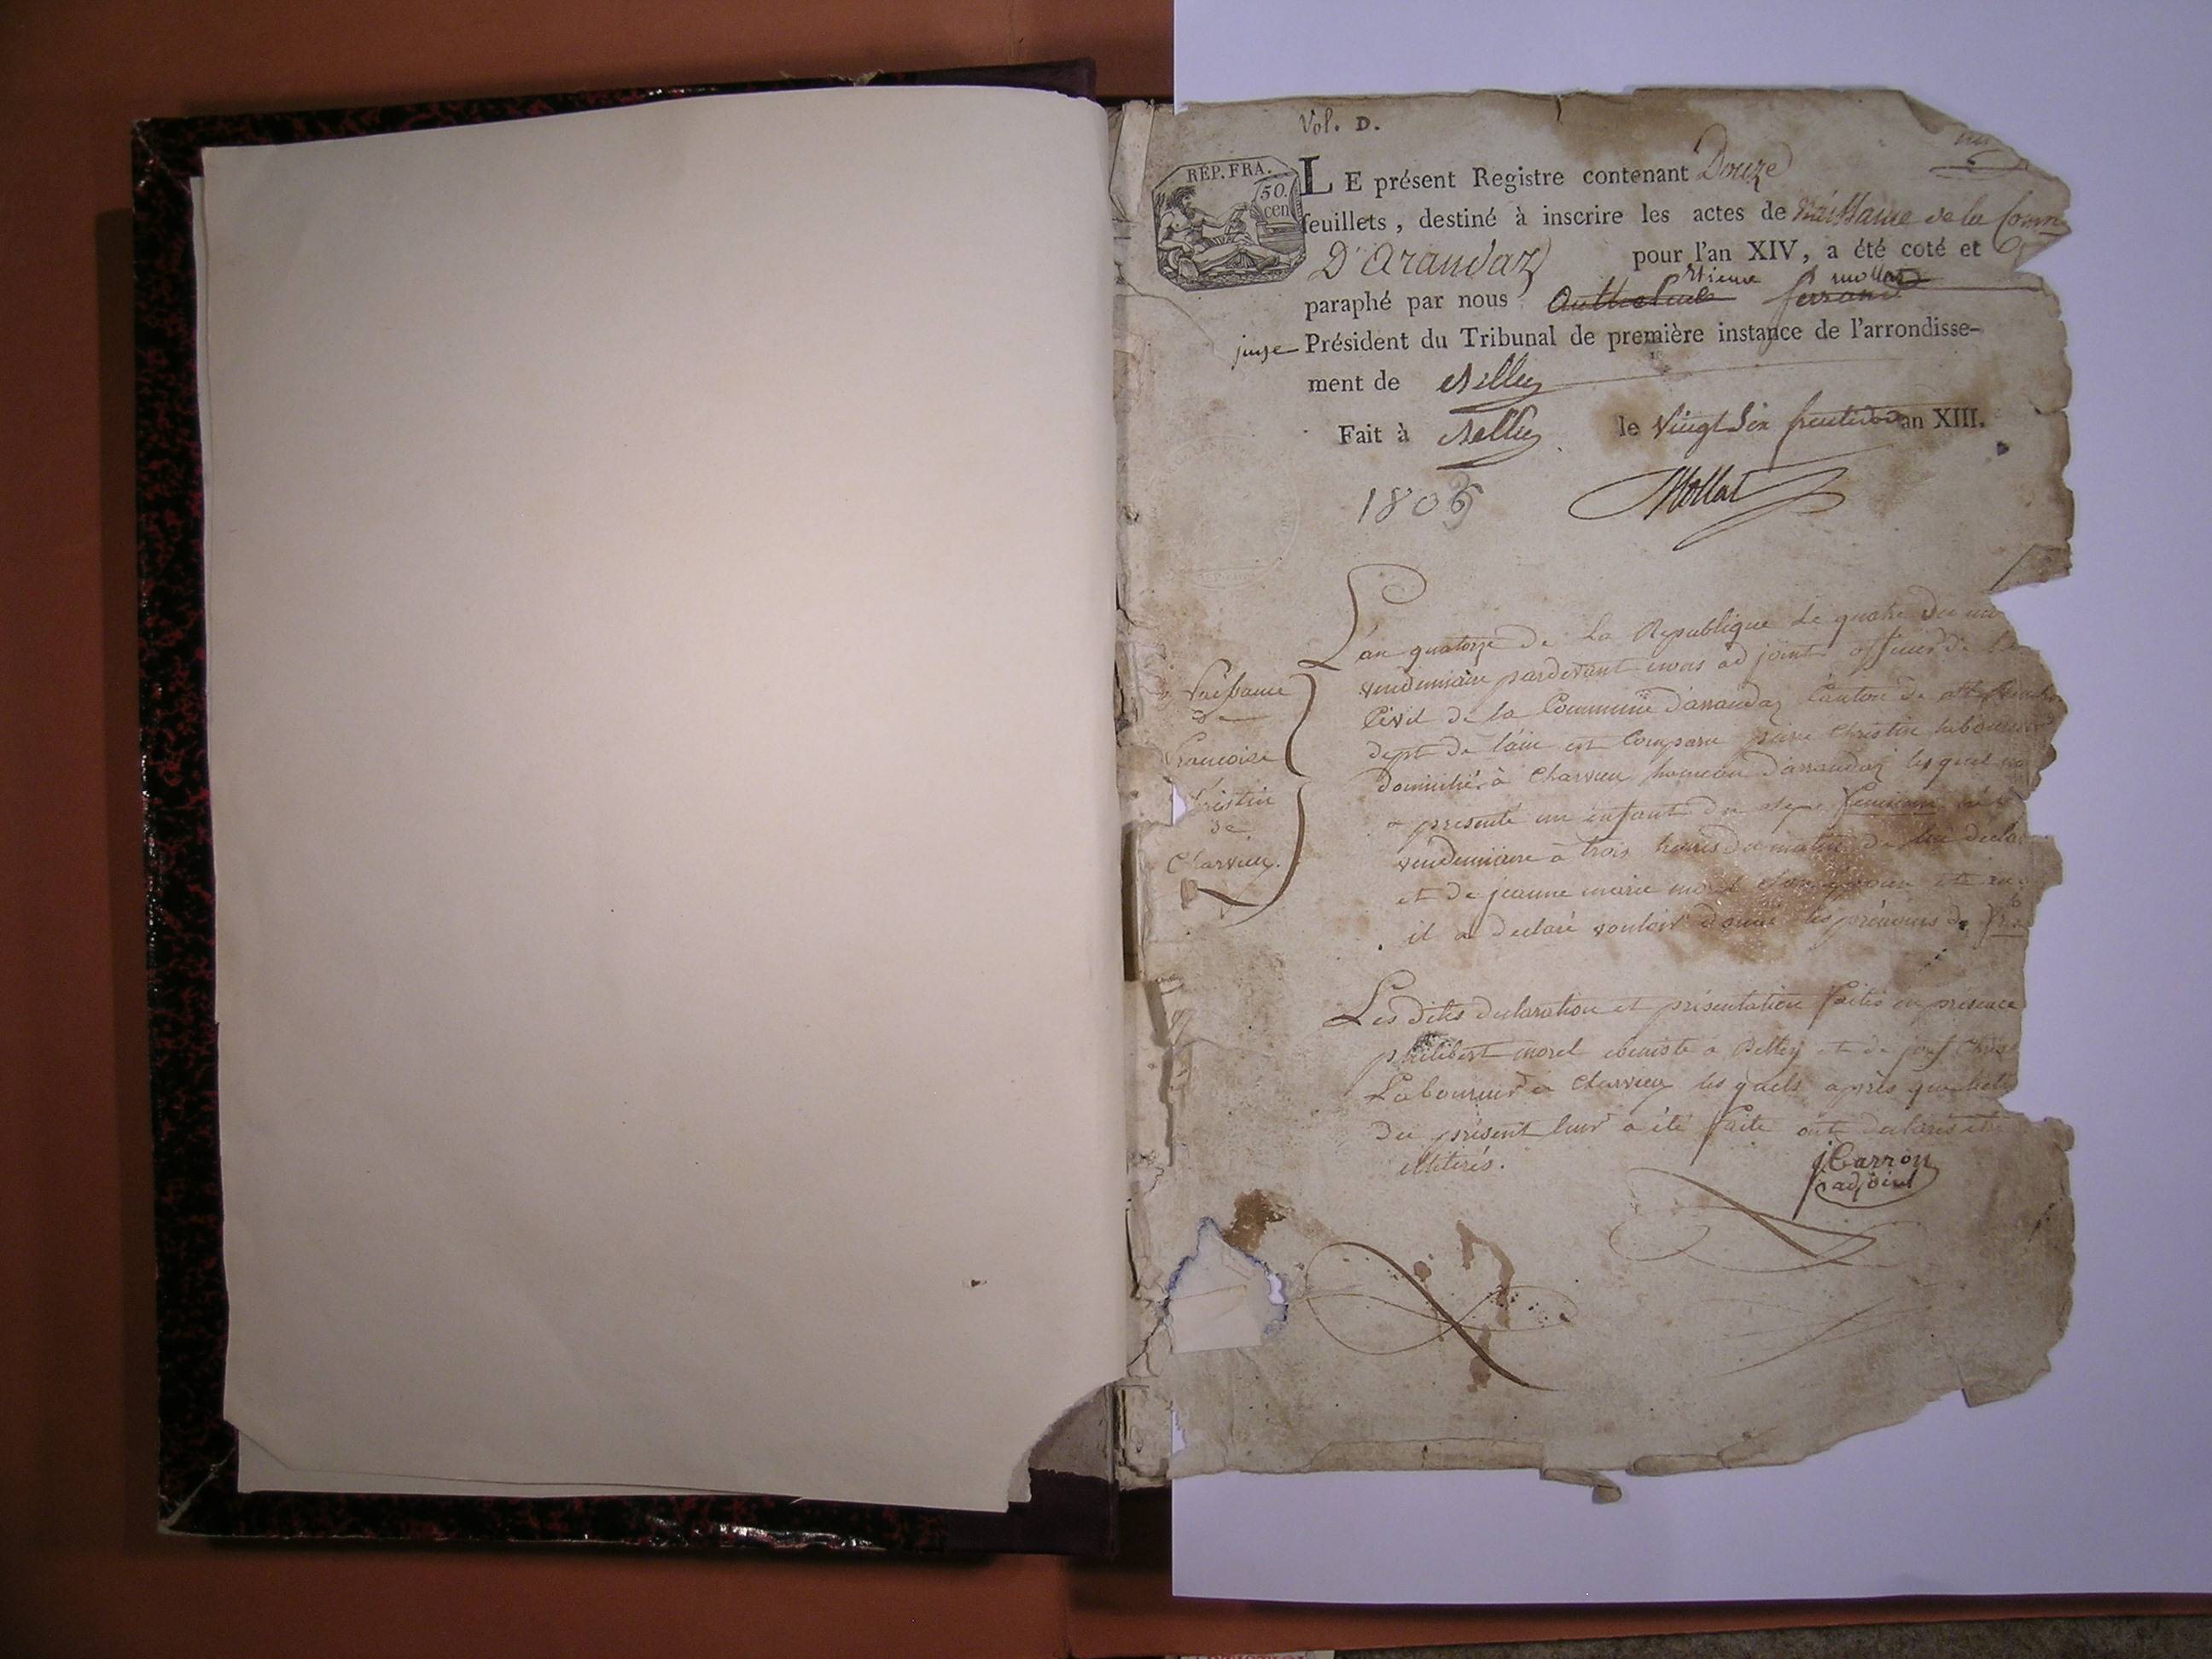 Vol. D.
RÉP. FRA.
50.
cen
LE présent Registre contenant Douze
feuillets, destiné à inscrire les actes de Naissance de la Comn
D'Arandaz pour l'an XIV, a été coté et
Etienne mollat
paraphé par nous Anthelme ferrand
juge Président du Tribunal de première instance de l'arrondisse-
ment de Belley
Fait à Belley le vingt Six fructidor an XIII.
1805
Mollat
L'an quatorze de la Republique le quatre du
vendemiaire pardevant nous adjoint officier de
Civil de la Commune d'arrandaz Canton de
dept de l'ain est Comparu pierre Christin laboureur
domicilié à Charvieu hameau d'arrandaz lesquel
a presenté un enfant du sexe feminin né
vendemiaire à trois heures du matin de lui decla
et de jeanne marie
il a declaré vouloir donné les prénoms de
Naissance
de
francoise
Christin
de
Charvieu.
Les dites declaration et présentation faites en présence
philibert morel a Belley et de
Laboureur a Charvieu les quels après que
du présent leur a été faite ont declarés etre
illiterés.
jCarron
adjoint